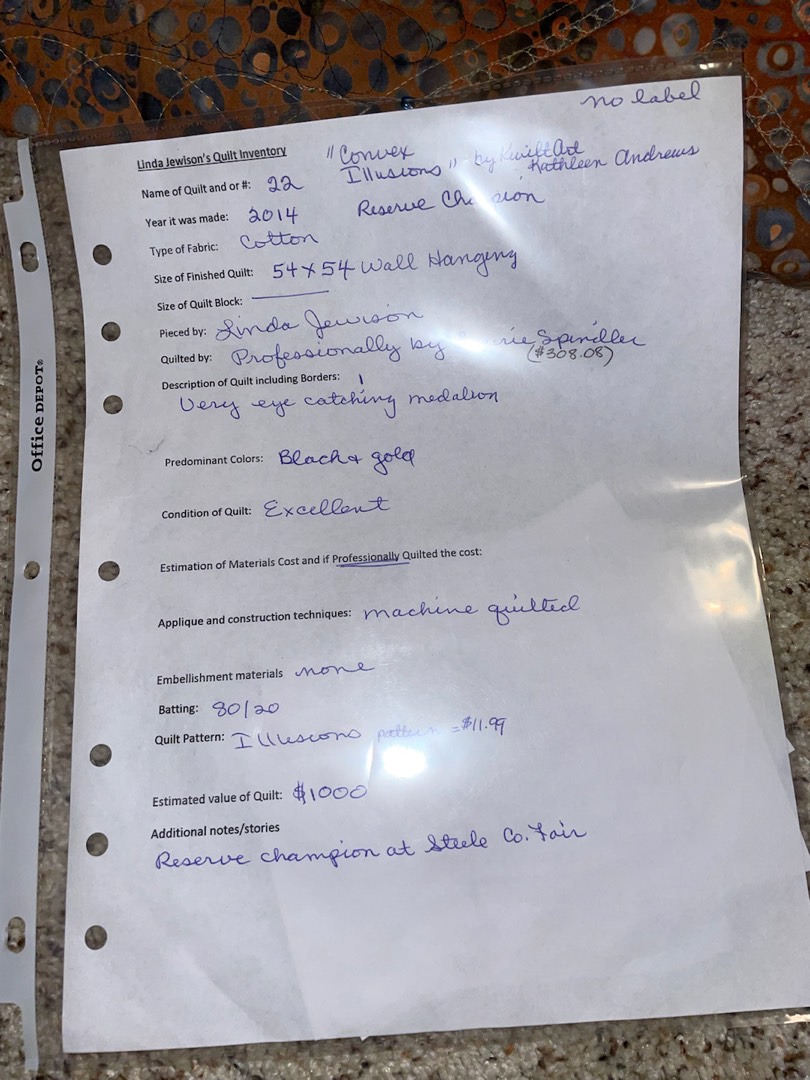 no label
Linda Jewison's Quilt Inventory "Convex
Illusions" by Kwilt Art
Kathleen Andrews
Name of Quilt and or #: 22
Year it was made: 2014 Reserve
Type of Fabric: Cotton
Size of Finished Quilt: 54 x 54 Wall Hanging
Size of Quilt Block:
Pieced by: Linda Jewison
Quilted by: Professionally by Spindler
($308.08)
Description of Quilt including Borders:
Very eye catching medalion
Predominant Colors: Black + gold
Condition of Quilt: Excellent
Estimation of Materials Cost and if Professionally Quilted the cost:
Applique and construction techniques: machine quilted
Embellishment materials none
Batting: 80/20
Quilt Pattern: Illusions pattern = $11.99
Estimated value of Quilt: $1000
Additional notes/stories
Reserve champion at Steele Co. Fair
Office DEPOT®